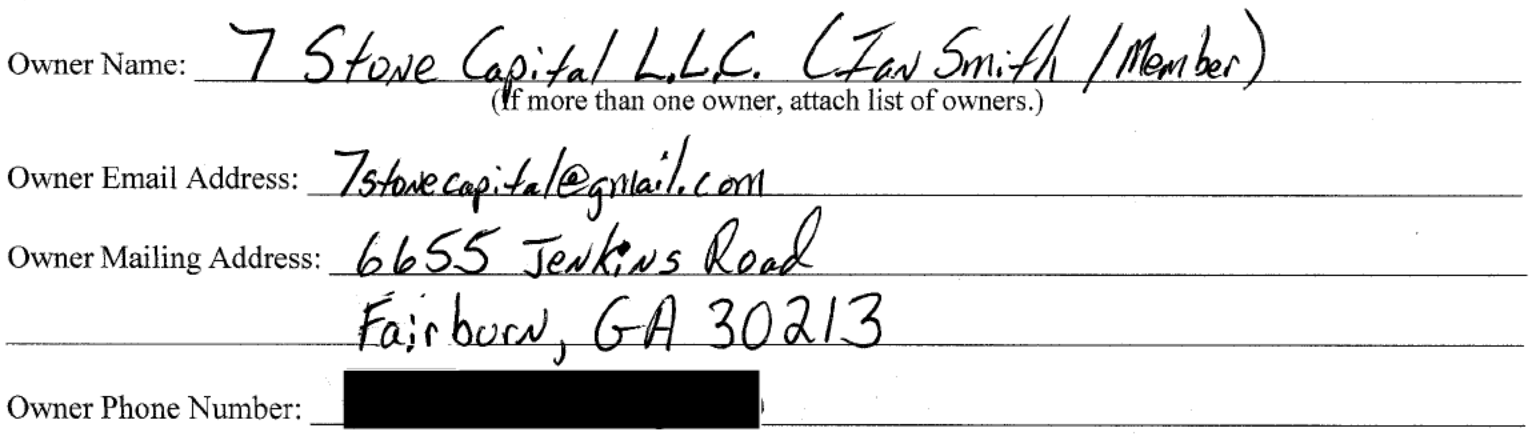 Owner Name: 7 Stone Capital L.L.C. (Ian Smith / Member)
(If more than one owner, attach list of owners.)
Owner Email Address: 7stonecapital@gmail.com
Owner Mailing Address: 6655 Jenkins Road
Fairburn, GA 30213
Owner Phone Number: